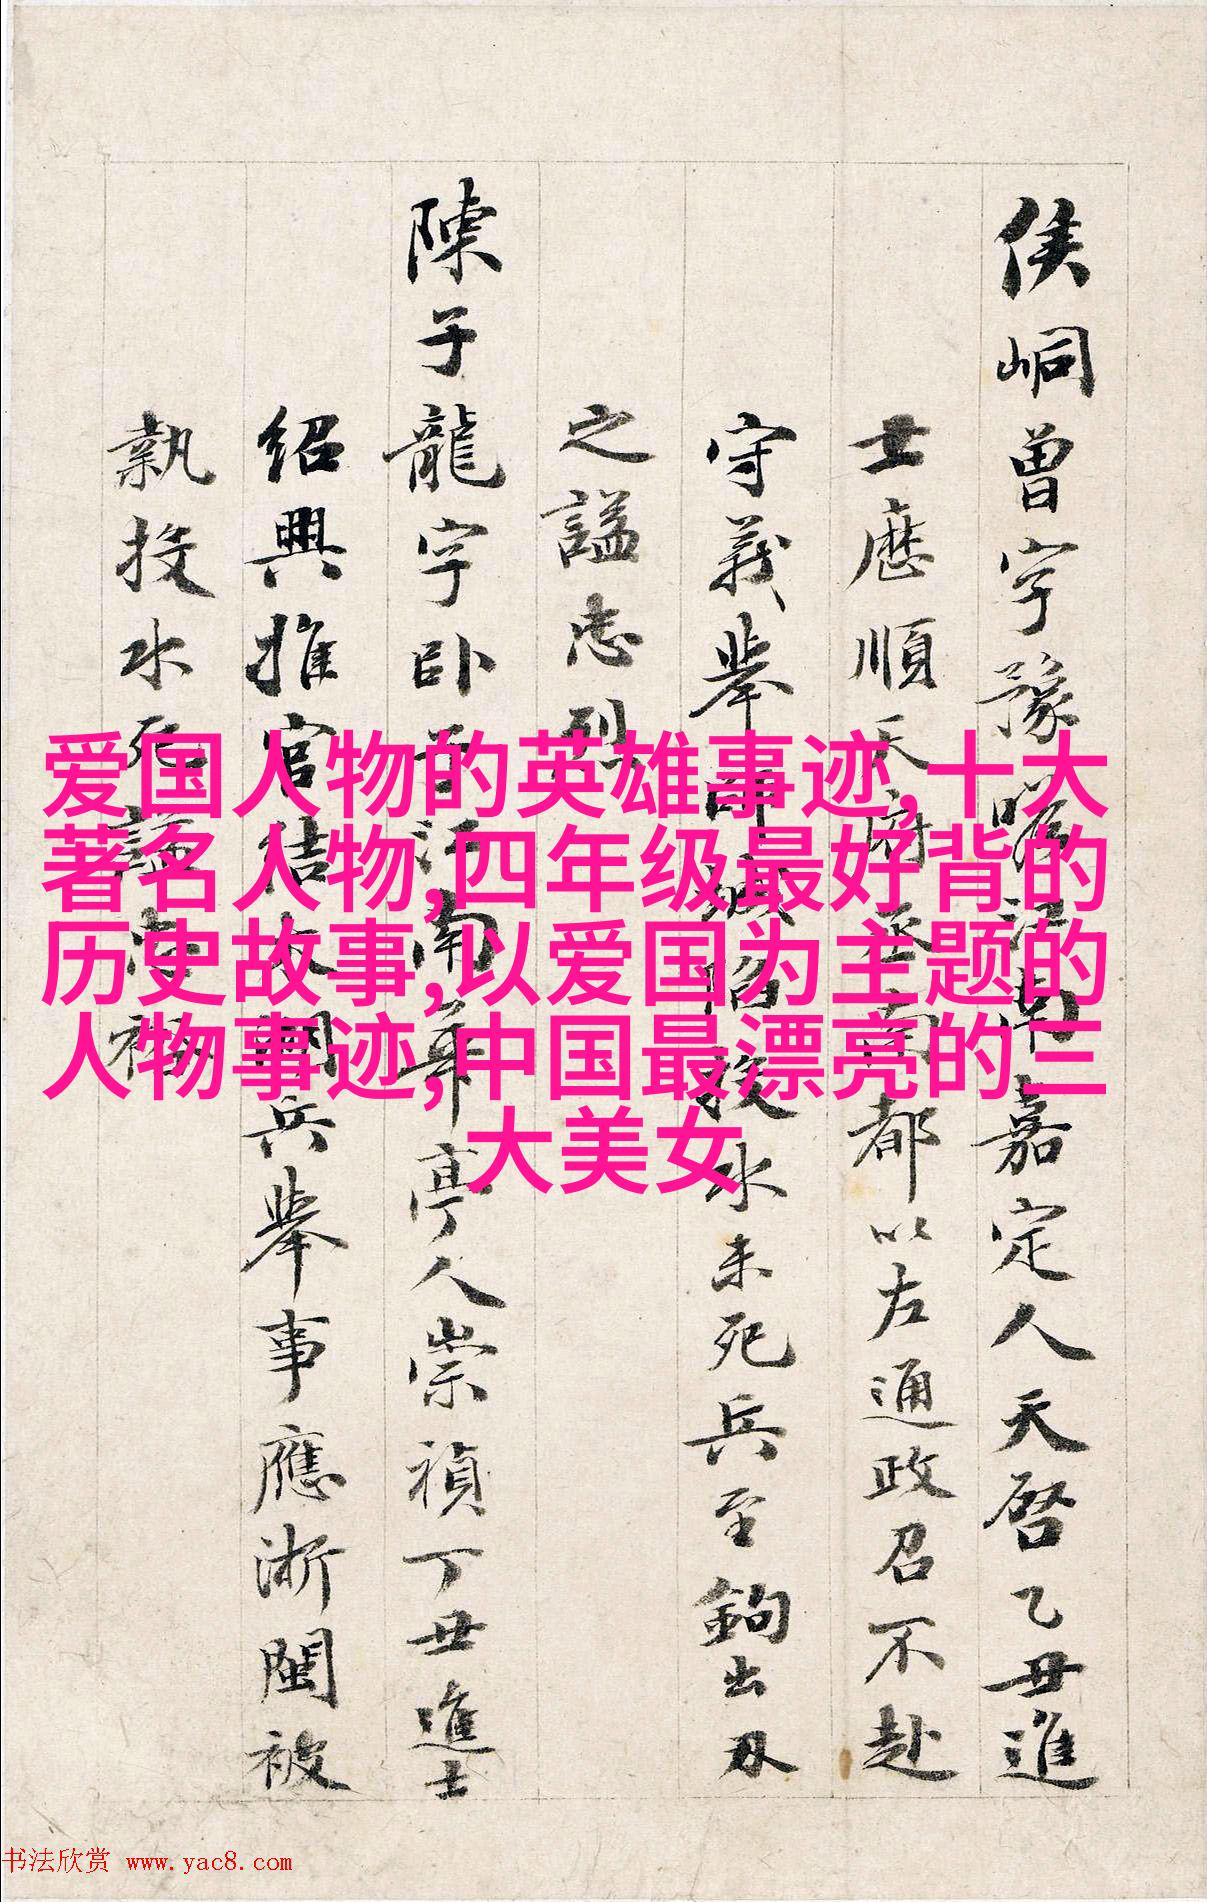 侯峒曾字豫瞻江南嘉定人天啓乙丑進
士歷順天府丞南都以左通政召不赴
守義舉師城陷投水未死兵至鉤出刃
之謚忠烈
陳子龍字卧子江南華亭人崇禎丁丑進士
紹興推官結太湖兵舉事應浙閩被
執投水死謚忠裕
爱国人物的英雄事迹,十大
著名人物,四年级最好背的
历史故事,以爱国为主题的
人物事迹,中国最漂亮的三
大美女
书法欣赏 www.yac8.com